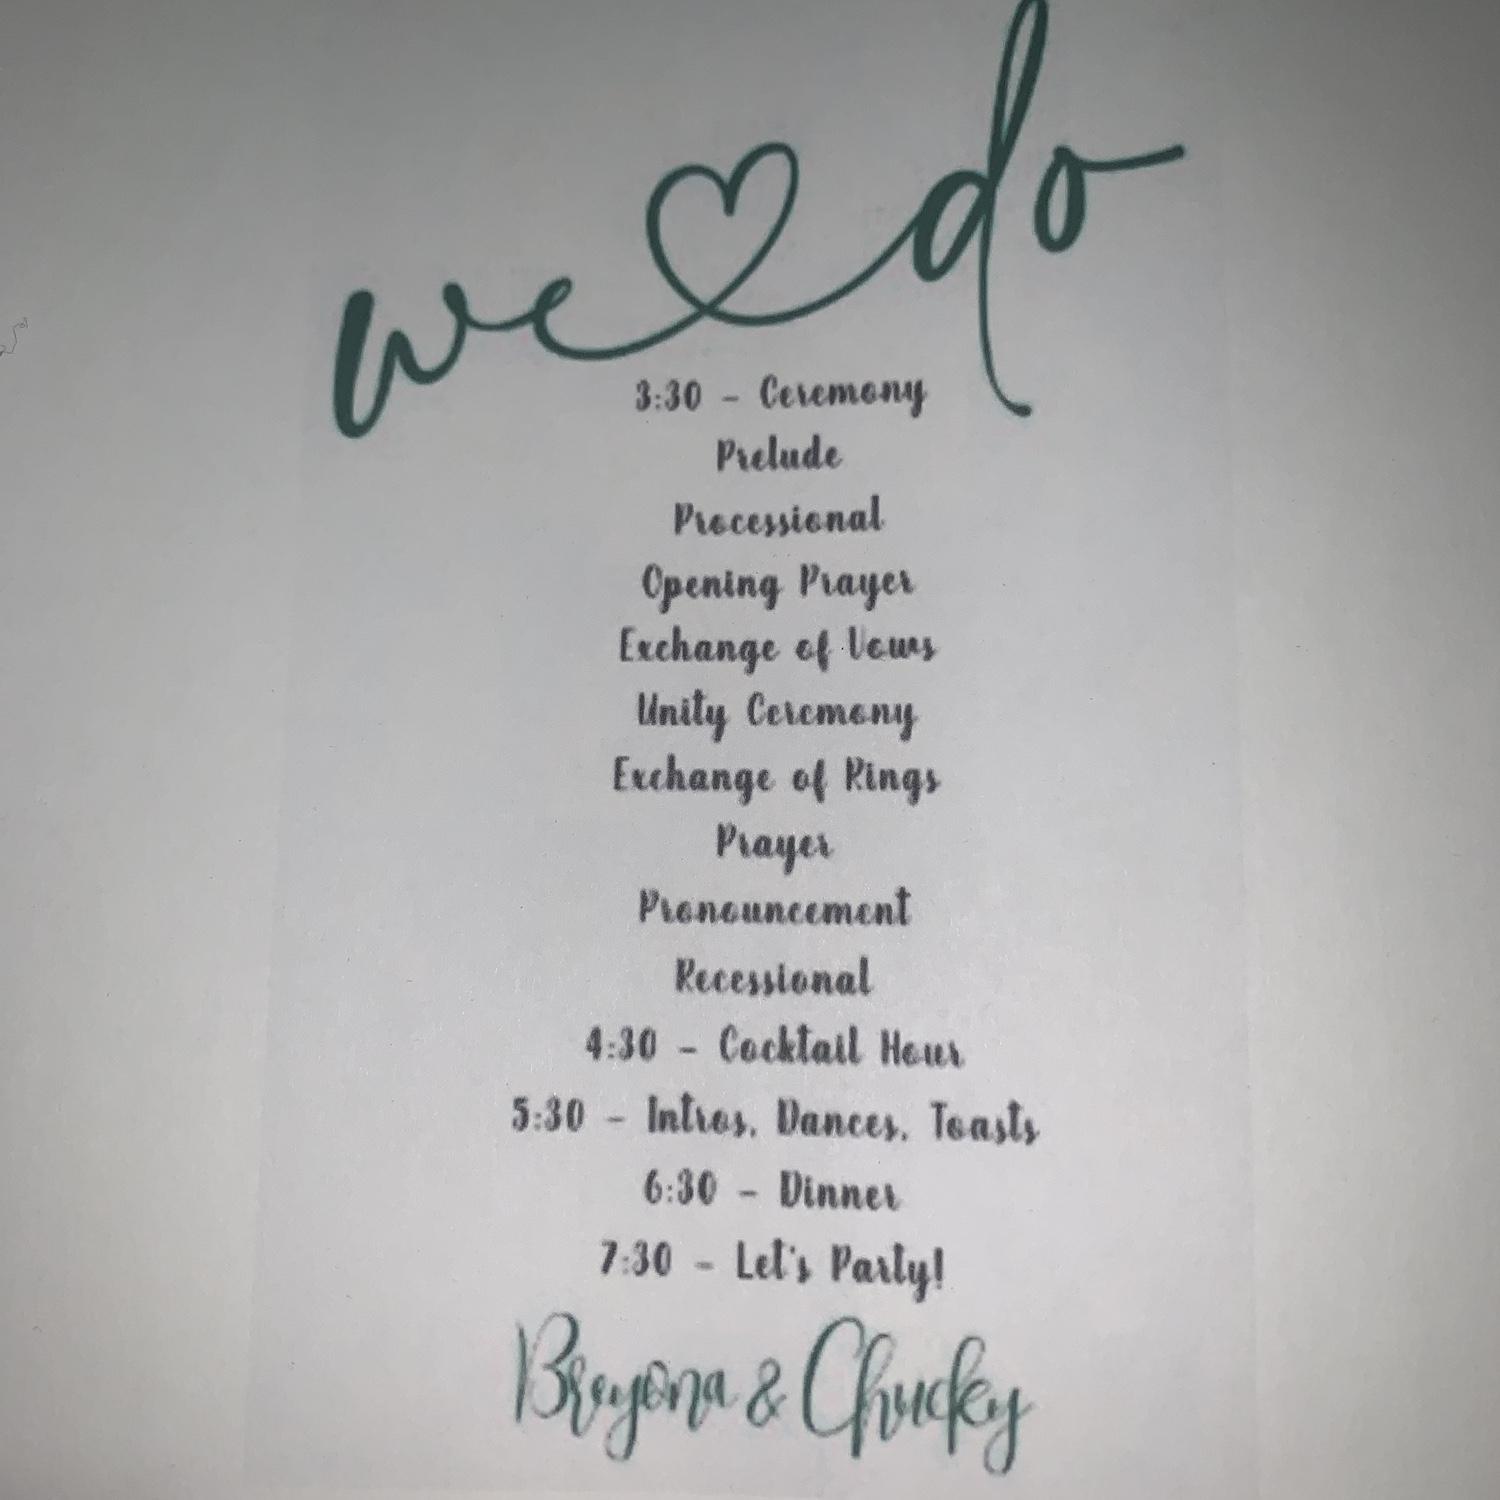 we do
3:30 - Ceremony
Prelude
Processional
Opening Prayer
Exchange of Vows
Unity Ceremony
Exchange of Rings
Prayer
Pronouncement
Recessional
4:30 - Cocktail Hour
5:30 - Intros, Dances, Toasts
6:30 - Dinner
7:30 - Let's Party!
Breyona & Chucky